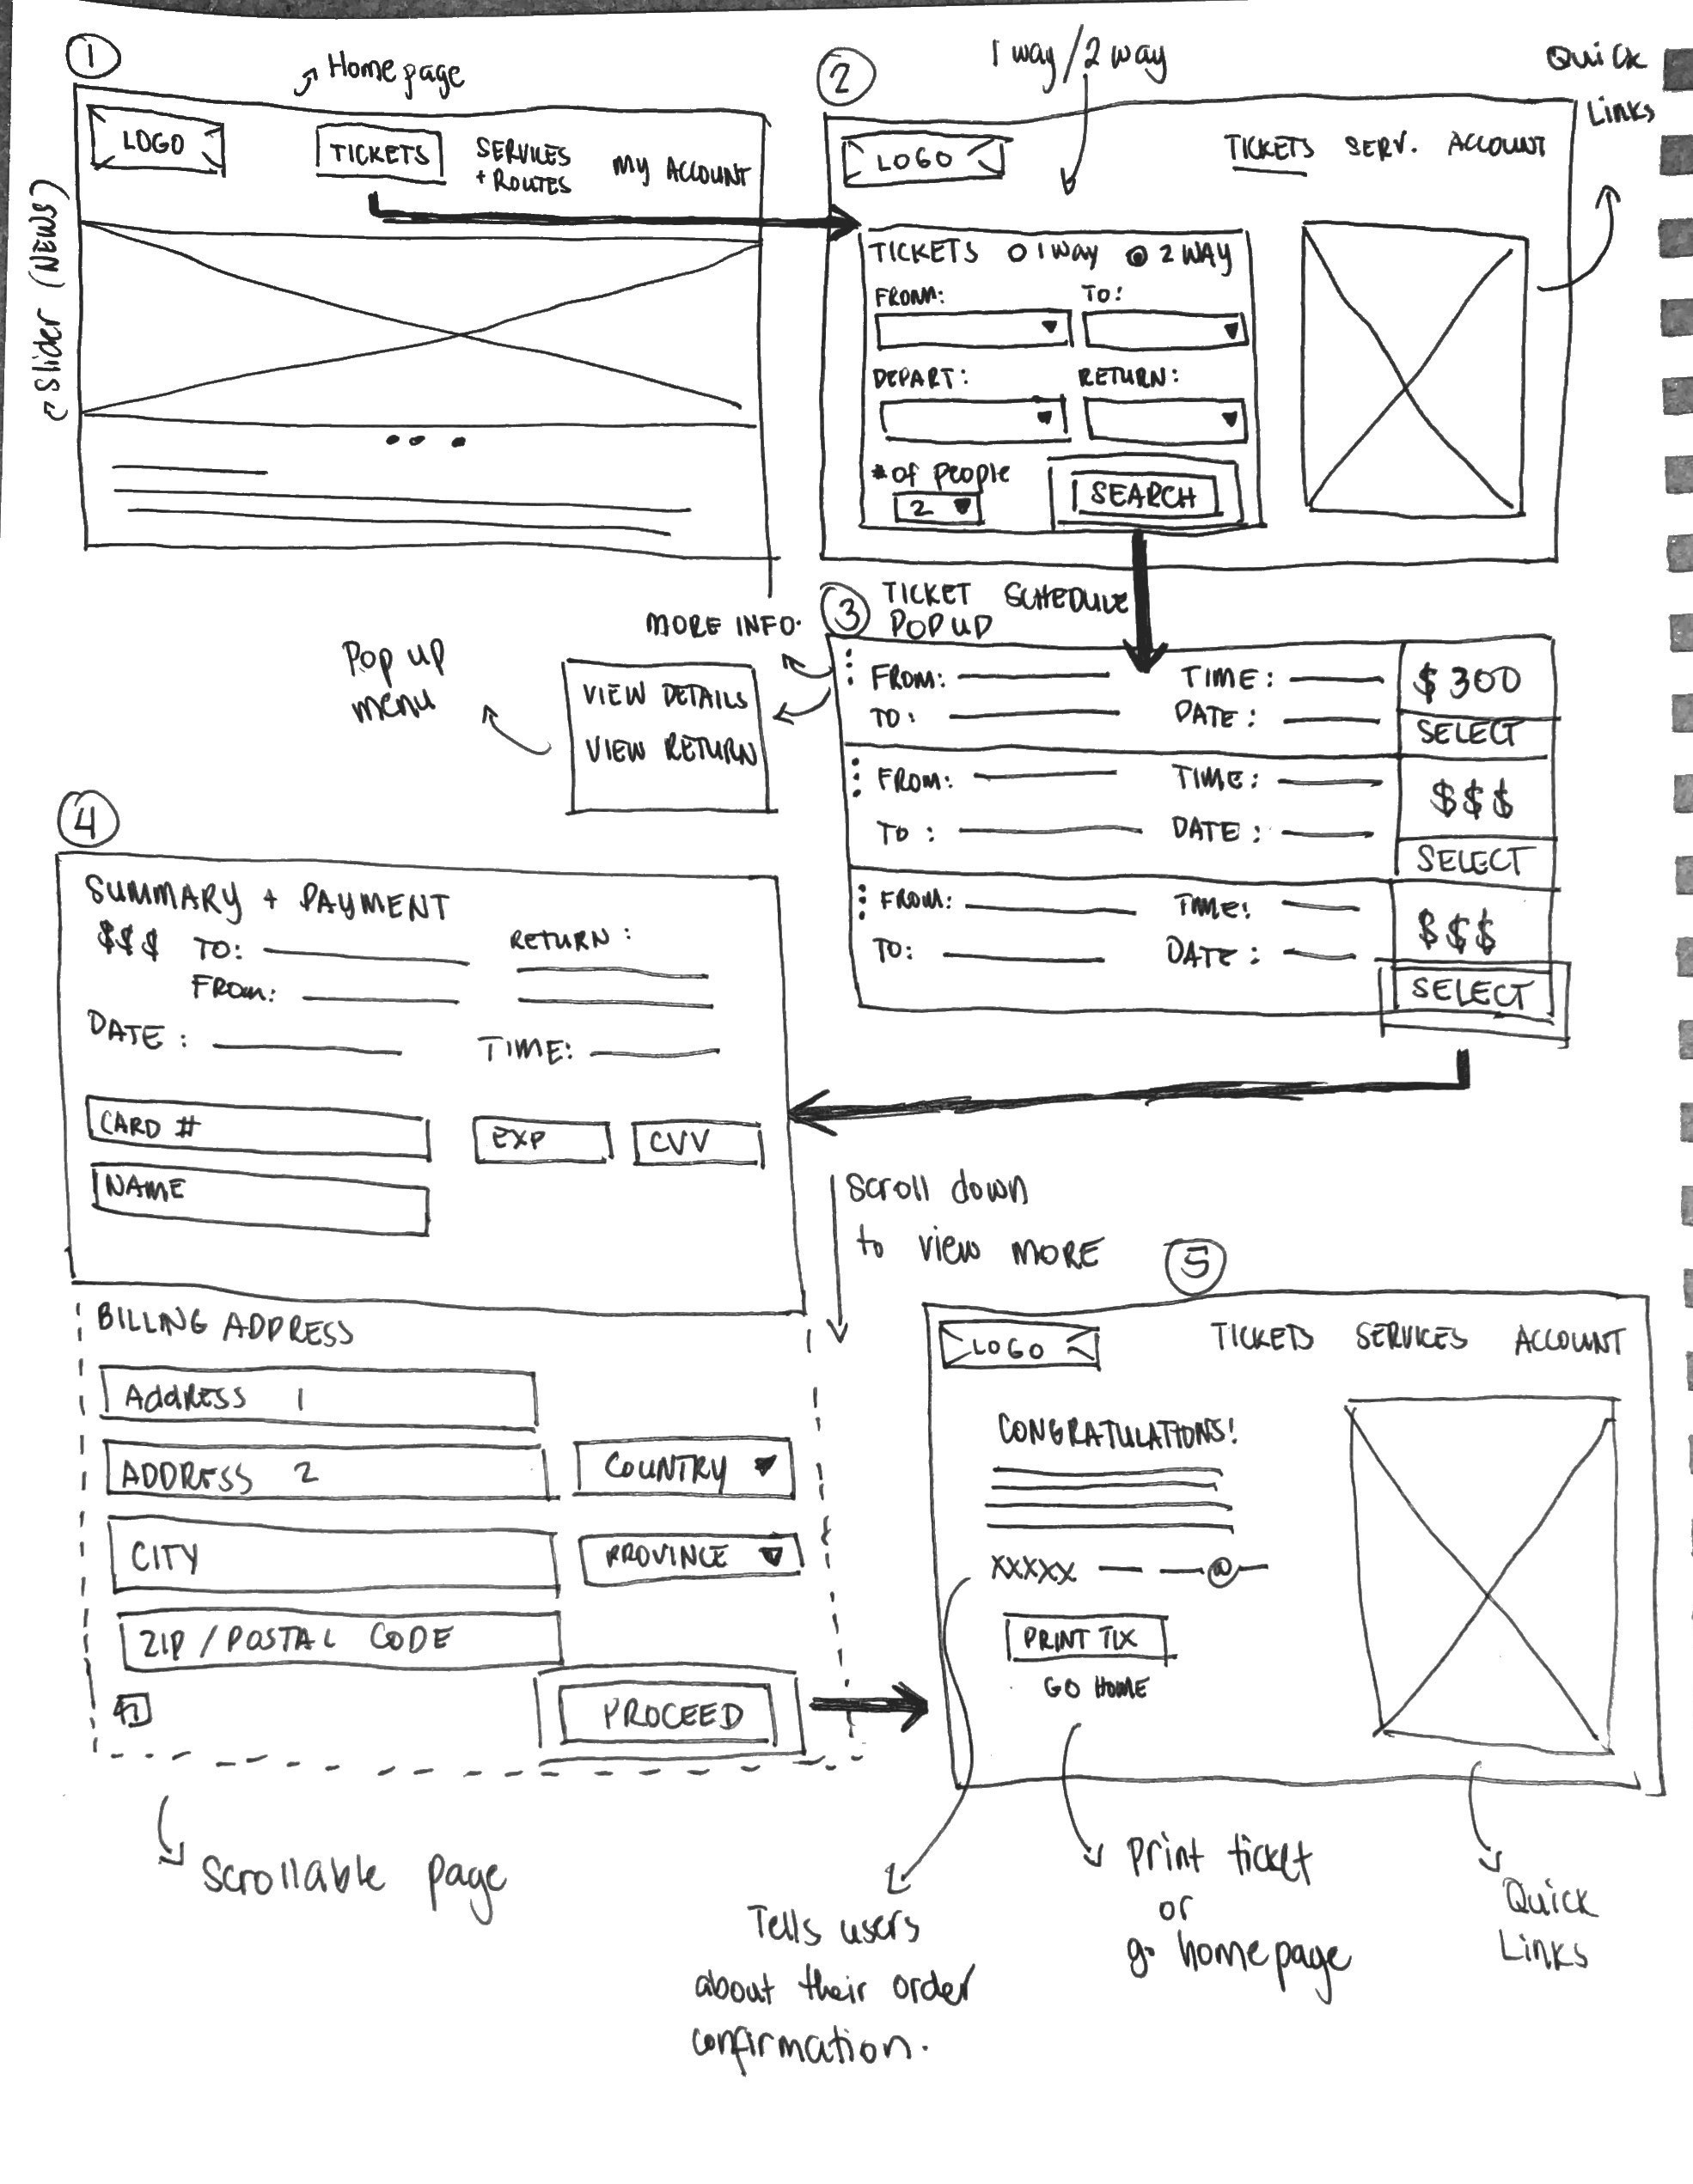 1
Homepage
LOGO
TICKETS
SERVICES
+ ROUTES
MY ACCOUNT
Slider (NEWS)
2
1 way/2 way
Quick
Links
LOGO
TICKETS SERV. ACCOUNT
TICKETS 1 WAY 2 WAY
FROM: TO:
DEPART: RETURN:
# of people
2
SEARCH
3 TICKET SCHEDULE
POP UP
MORE INFO.
Pop up
menu
VIEW DETAILS
VIEW RETURN
FROM: TIME: $300
TO: DATE: SELECT
FROM: TIME: $$$
TO: DATE: SELECT
FROM: TIME: $$$
TO: DATE: SELECT
4
SUMMARY + PAYMENT
$$$ TO: RETURN:
FROM:
DATE: TIME:
CARD # EXP CVV
NAME
Scroll down
to view MORE
BILLING ADDRESS
Address 1
ADDRESS 2 COUNTRY
CITY PROVINCE
ZIP / POSTAL CODE
PROCEED
Scrollable page
5
LOGO
TICKETS SERVICES ACCOUNT
CONGRATULATIONS!
XXXXX — —@—
PRINT TIX
GO HOME
Tells users
about their order
confirmation.
Print ticket
or
go homepage
Quick
Links